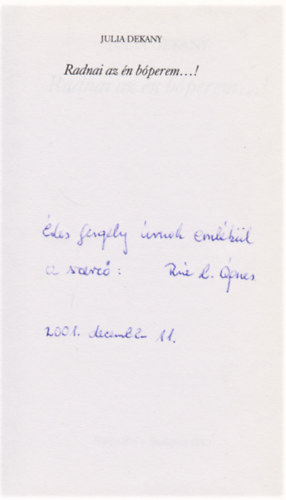 JULIA DEKANY
Radnai az én bóperem...!
Édes Gergely úrnak emlékül
a szerző: R. Ágnes
2001. december 11.